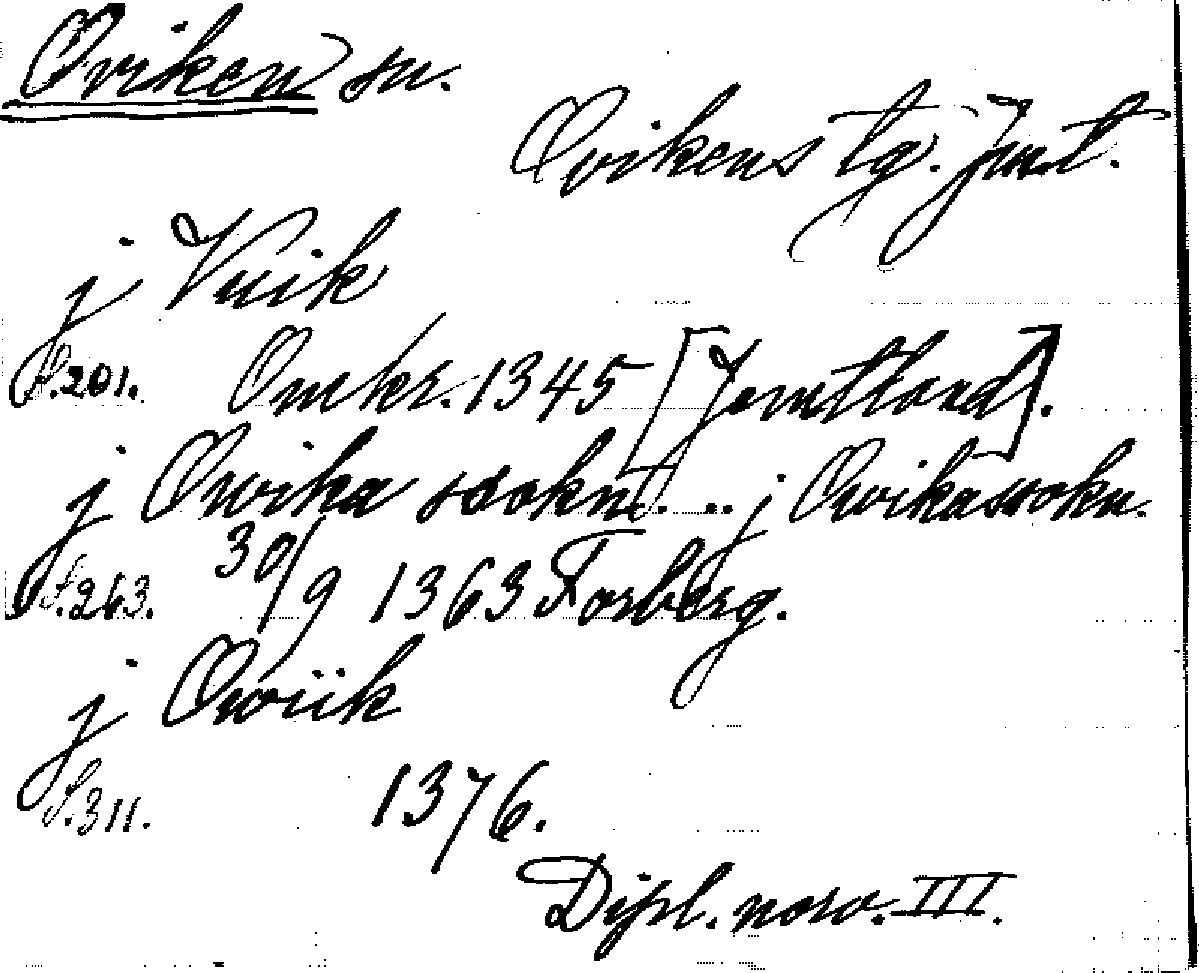 Oviken sn.
Ovikens tg. Jmt.
j Vuik
S.201. Omkr. 1345 [Jemtland].
j Owika sookn. .. j Owikasookn.
S.263. 30/9 1363 Forberg.
j Owiik
S.311. 1376.
Dipl. norv. III.